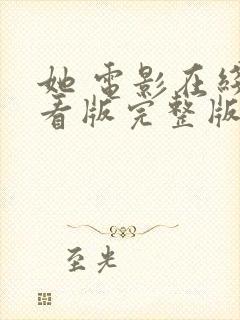 她 电影在线
看版完整版
至光